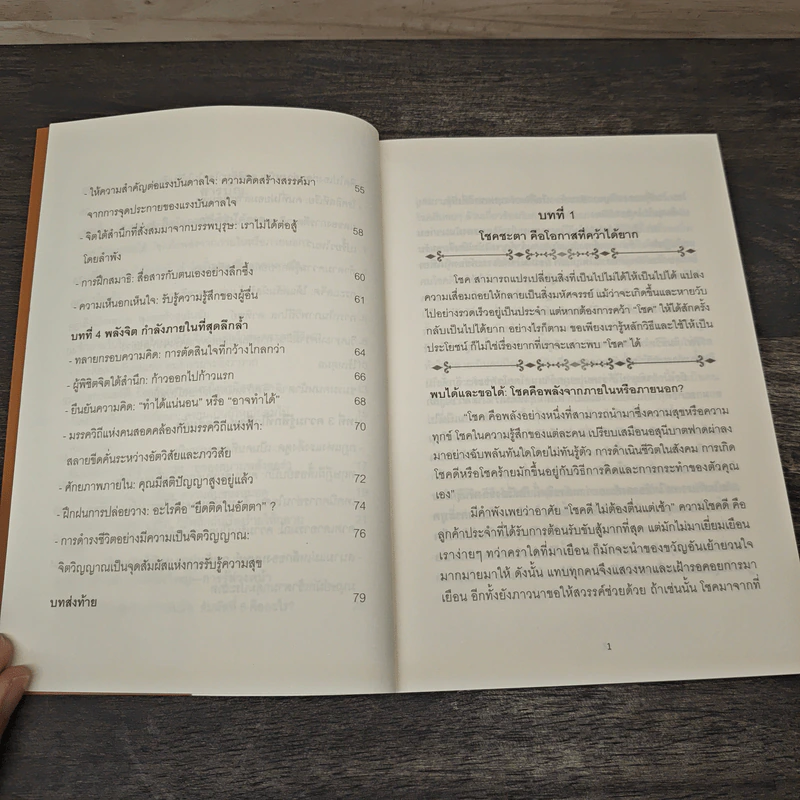 - ให้ความสำคัญต่อแรงบันดาลใจ: ความคิดสร้างสรรค์มา 55
จากการจุดประกายของแรงบันดาลใจ
- จิตใต้สำนึกที่สั่งสมมาจากบรรพบุรุษ: เราไม่ได้ต่อสู้ 58
โดยลำพัง
- การฝึกสมาธิ: สื่อสารกับตนเองอย่างลึกซึ้ง 60
- ความเห็นอกเห็นใจ: รับรู้ความรู้สึกของผู้อื่น 61
บทที่ 4 พลังจิต กำลังภายในที่สุดลึกล้ำ
- ทลายกรอบความคิด: การตัดสินใจที่กว้างไกลกว่า 64
- ผู้พิชิตจิตใต้สำนึก: ก้าวออกไปก้าวแรก 66
- ยืนยันความคิด: "ทำได้แน่นอน" หรือ "อาจทำได้" 68
- มรรควิถีแห่งคนสอดคล้องกับมรรควิถีแห่งฟ้า: 70
สลายขีดคั่นระหว่างอัตวิสัยและภววิสัย
- ศักยภาพภายใน: คุณมีสติปัญญาสูงอยู่แล้ว 72
- ฝึกฝนการปล่อยวาง: อะไรคือ "ยึดติดในอัตตา" ? 74
- การดำรงชีวิตอย่างมีความเป็นจิตวิญญาณ: 76
จิตวิญญาณเป็นจุดสัมผัสแห่งการรับรู้ความสุข
บทส่งท้าย 79
บทที่ 1
โชคชะตา คือโอกาสที่คว้าได้ยาก
โชค สามารถแปรเปลี่ยนสิ่งที่เป็นไปไม่ได้ให้เป็นไปได้ แปลง
ความเสื่อมถอยให้กลายเป็นสิ่งมหัศจรรย์ แม้ว่าจะเกิดขึ้นและหายวับ
ไปอย่างรวดเร็วอยู่เป็นประจำ แต่หากต้องการคว้า "โชค" ให้ได้สักครั้ง
กลับเป็นไปได้ยาก อย่างไรก็ตาม ขอเพียงเรารู้หลักวิธีและใช้ให้เป็น
ประโยชน์ ก็ไม่ใช่เรื่องยากที่เราจะเสาะพบ "โชค" ได้
พบได้และขอได้: โชคคือพลังจากภายในหรือภายนอก?
"โชค คือพลังอย่างหนึ่งที่สามารถนำมาซึ่งความสุขหรือความ
ทุกข์ โชคในความรู้สึกของแต่ละคน เปรียบเสมือนอสุนีบาตฟาดผ่าลง
มาอย่างฉับพลันทันใดโดยไม่ทันรู้ตัว การดำเนินชีวิตในสังคม การเกิด
โชคดีหรือโชคร้ายมักขึ้นอยู่กับวิธีการคิดและการกระทำของตัวคุณ
เอง"
มีคำพังเพยว่าอาศัย "โชคดี ไม่ต้องตื่นแต่เช้า" ความโชคดี คือ
ลูกค้าประจำที่ได้รับการต้อนรับขับสู้มากที่สุด แต่มักไม่มาเยี่ยมเยือน
เราง่ายๆ ทว่าคราใดที่มาเยือน ก็มักจะนำของขวัญอันเย้ายวนใจ
มากมายมาให้ ดังนั้น แทบทุกคนจึงแสวงหาและเฝ้ารอคอยการมา
เยือน อีกทั้งยังภาวนาขอให้สวรรค์ช่วยด้วย ถ้าเช่นนั้น โชคมาจากที่
1